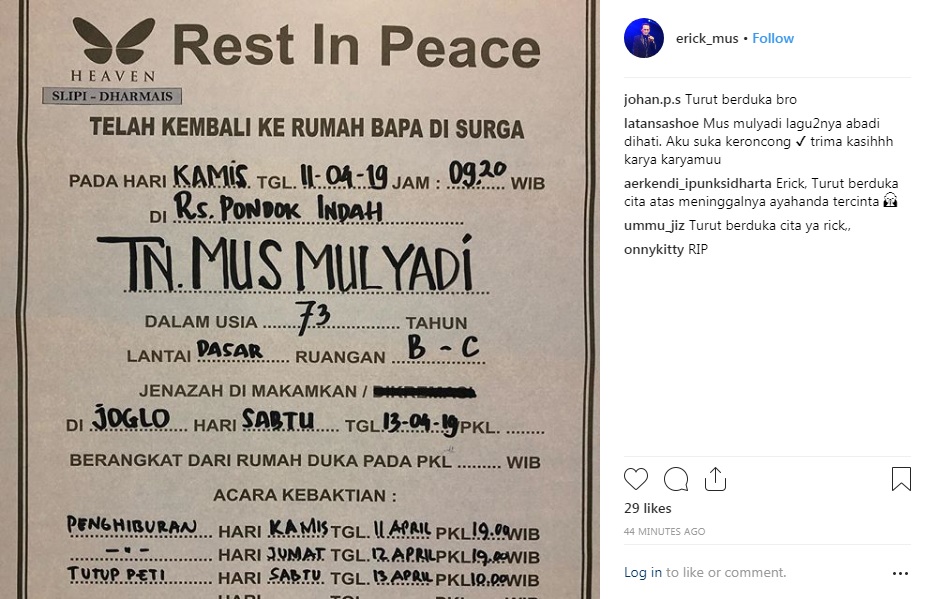 Rest In Peace
HEAVEN
SLIPI - DHARMAIS
TELAH KEMBALI KE RUMAH BAPA DI SURGA
PADA HARI KAMIS TGL. 11-04-19 JAM : 09.20 WIB
DI RS. PONDOK INDAH
TN. MUS MULYADI
DALAM USIA 73 TAHUN
LANTAI DASAR RUANGAN B - C
JENAZAH DI MAKAMKAN /
DI JOGLO HARI SABTU TGL. 13-04-19 PKL. ........
BERANGKAT DARI RUMAH DUKA PADA PKL ......... WIB
ACARA KEBAKTIAN :
PENGHIBURAN HARI KAMIS TGL. 11 APRIL PKL 19.00 WIB
- " - HARI JUMAT TGL. 12 APRIL PKL 19.00 WIB
TUTUP PETI HARI SABTU TGL. 13 APRIL PKL 10.00 WIB
erick_mus • Follow
johan.p.s Turut berduka bro
latansashoe Mus mulyadi lagu2nya abadi
dihati. Aku suka keroncong ✓ trima kasihhh
karya karyamuu
aerkendi_ipunksidharta Erick, Turut berduka
cita atas meninggalnya ayahanda tercinta
ummu_jiz Turut berduka cita ya rick,,
onnykitty RIP
29 likes
44 MINUTES AGO
Log in to like or comment.